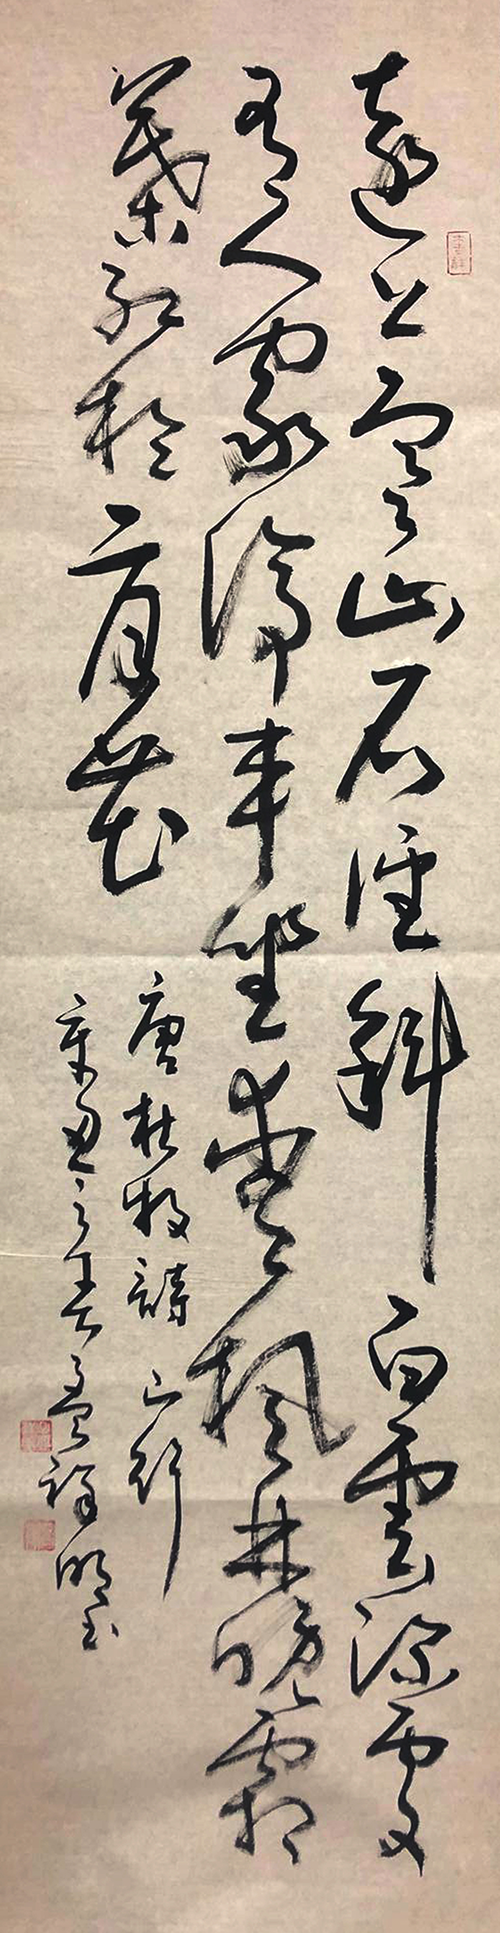 遠上寒山石徑斜白雲深處
有人家停車坐愛楓林晚霜
葉紅於二月花
唐杜牧詩山行
辛丑之春